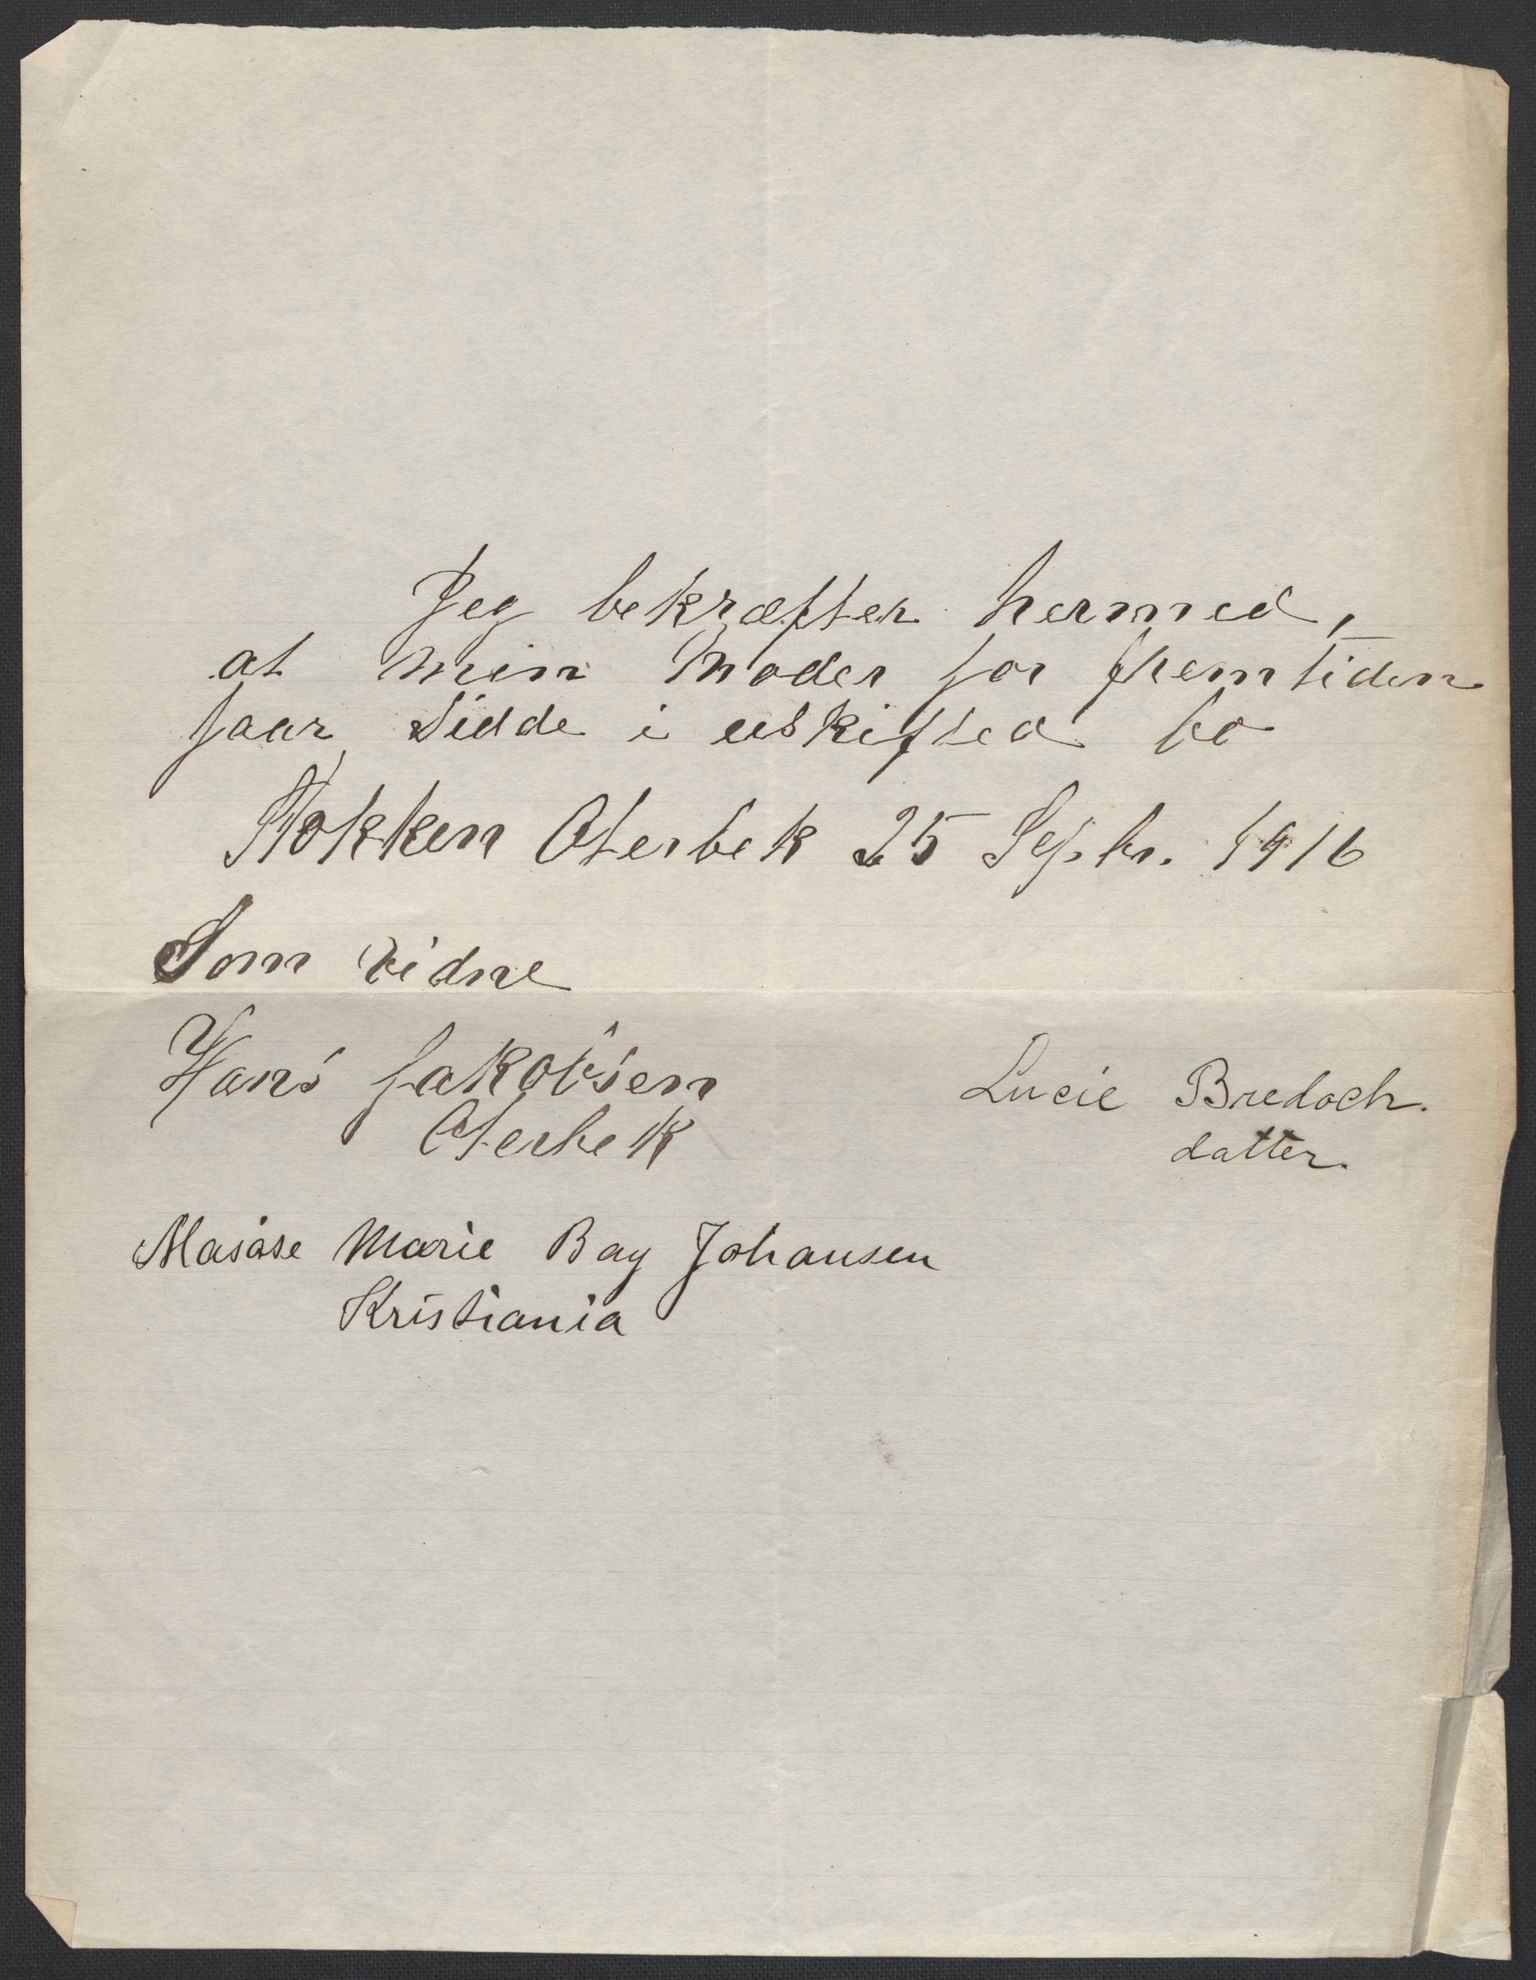 Jeg bekræfter hermed,
at min Moder for fremtiden
faar sidde i uskifted bo
Stokken Oterbek 25 Septbr. 1916
Som vidne
Hans Jakobsen
Oterbek
Lucie Bredoch.
datter.
Marie Bay Johansen
Kristiania